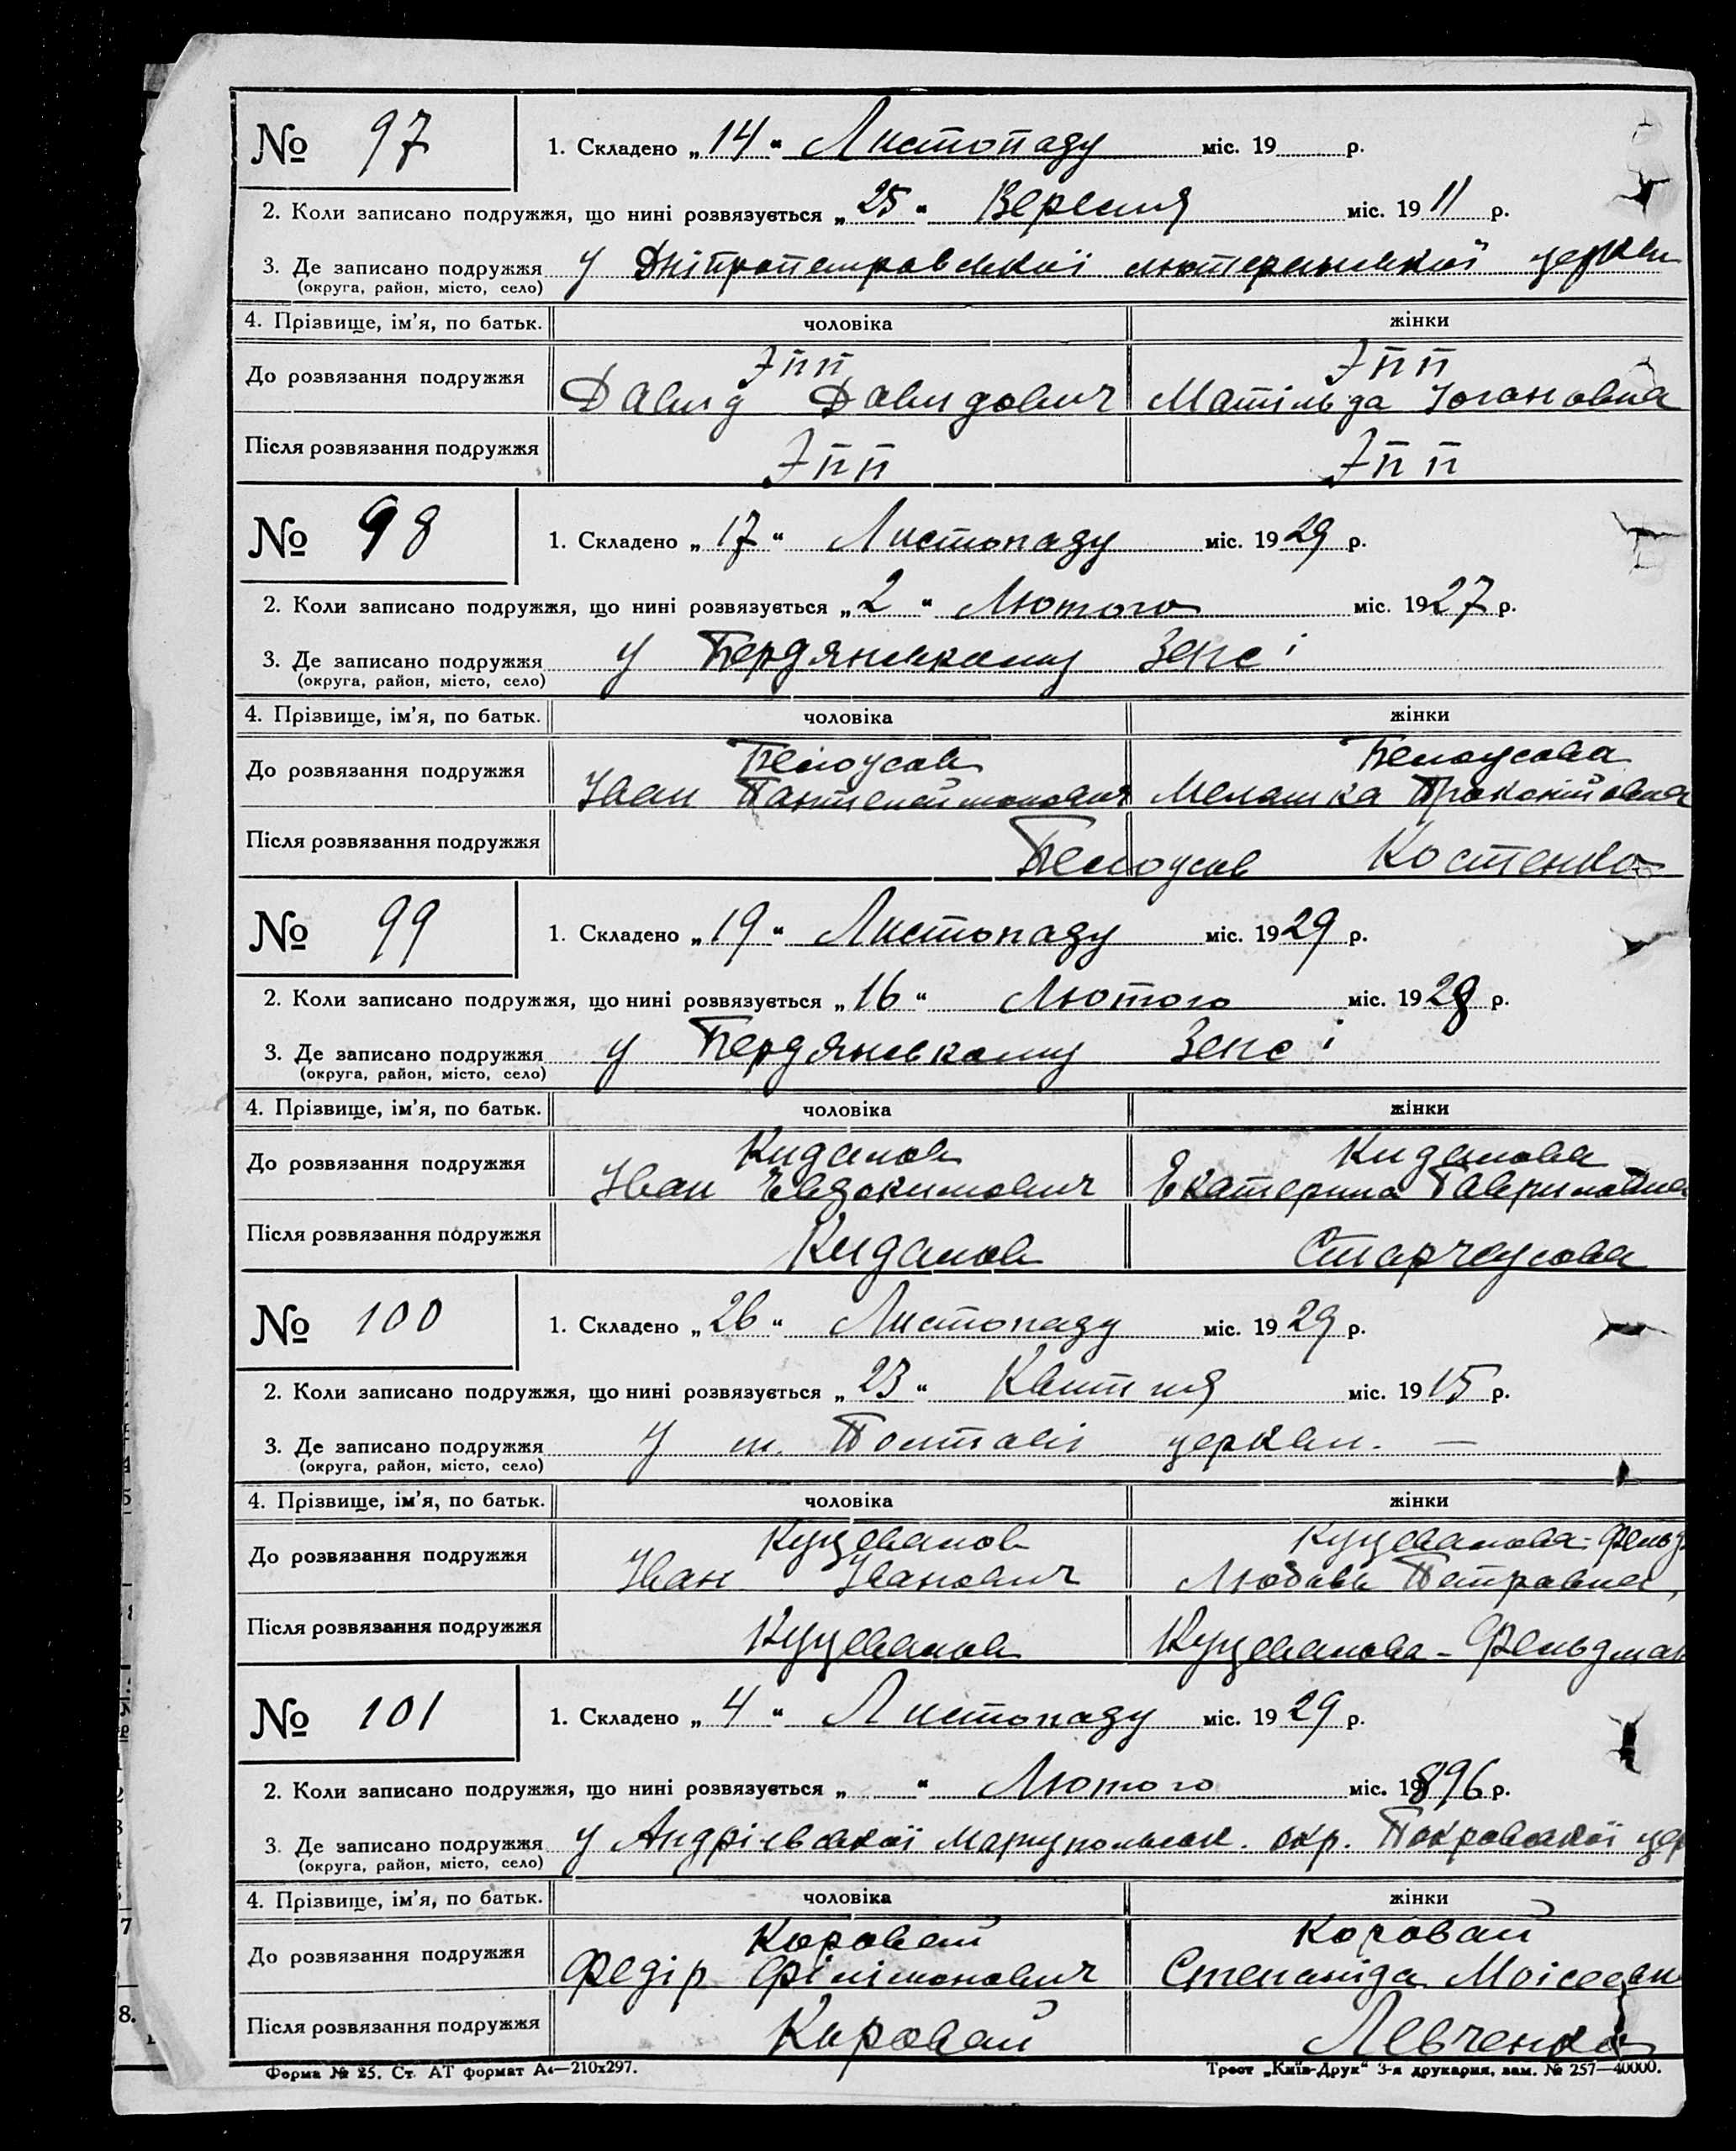 № 97
1. Складено „14“ Листопаду міс. 19 р.
2. Коли записано подружжя, що нині розвязується „25“ Вересня міс. 1911 р.
3. Де записано подружжя у Дніпропетровської лютеранської церкви
(округа, район, місто, село)
4. Прізвище, ім’я, по батьк. чоловіка жінки
Эпп Эпп
До розвязання подружжя Давид Давидович Матільда Іогановна
Після розвязання подружжя Эпп Эпп
№ 98
1. Складено „17“ Листопаду міс. 1929 р.
2. Коли записано подружжя, що нині розвязується „2“ Лютого міс. 1927 р.
3. Де записано подружжя у Бердянському Загсі
(округа, район, місто, село)
4. Прізвище, ім’я, по батьк. чоловіка жінки
Белоусов Белоусова
До розвязання подружжя Іван Пантелеймонович Мелашка Прокопіївна
Після розвязання подружжя Белоусов Костенко
№ 99
1. Складено „19“ Листопаду міс. 1929 р.
2. Коли записано подружжя, що нині розвязується „16“ Лютого міс. 1928 р.
3. Де записано подружжя у Бердянському Загсі
(округа, район, місто, село)
4. Прізвище, ім’я, по батьк. чоловіка жінки
Кидалов Кидалова
До розвязання подружжя Іван Евдокимович Екатерина Гавриловна
Після розвязання подружжя Кидалов Старчеусова
№ 100
1. Складено „26“ Листопаду міс. 1929 р.
2. Коли записано подружжя, що нині розвязується „23“ Квітня міс. 1915 р.
3. Де записано подружжя у м. Полтаві церкви. —
(округа, район, місто, село)
4. Прізвище, ім’я, по батьк. чоловіка жінки
Куцевалов Куцевалова-Фельд
До розвязання подружжя Іван Іванович Любовь Петровна,
Після розвязання подружжя Куцевалов Куцевалова-Фельдман
№ 101
1. Складено „4“ Листопаду міс. 1929 р.
2. Коли записано подружжя, що нині розвязується „ “ Лютого міс. 1896 р.
3. Де записано подружжя у Андрієвської Маріупольськ. окр. Покровської цер
(округа, район, місто, село)
4. Прізвище, ім’я, по батьк. чоловіка жінки
Коровай Коровай
До розвязання подружжя Федір Філімонович Степаніда Моісеевн
Після розвязання подружжя Коровай Левченко
Форма № 25. Ст. АТ формат А4—210х297. Трест „Київ-Друк“ 3-я друкарня, зам. № 257—40000.